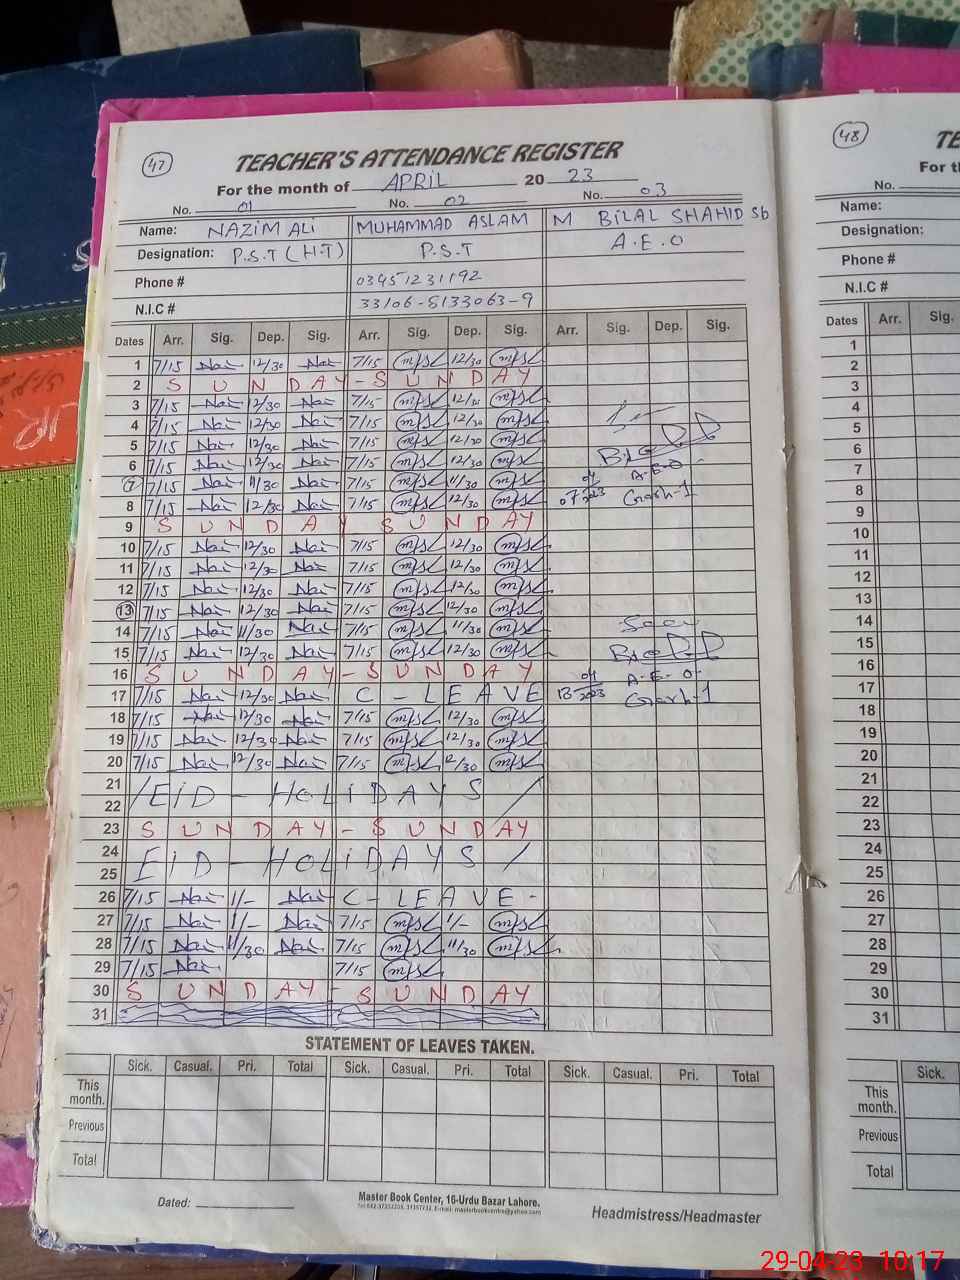 47
TEACHER'S ATTENDANCE REGISTER
For the month of APRIL 2023
No. 01 No. 02 No. 03
Name: NAZIM ALI MUHAMMAD ASLAM M BILAL SHAHID Sb
Designation: P.S.T (H.T) P.S.T A.E.O
Phone # 03451231192
N.I.C # 33106-8133063-9
Dates Arr. Sig. Dep. Sig. Arr. Sig. Dep. Sig. Arr. Sig. Dep. Sig.
1 7/15 Nai 12/30 Nai 7/15 12/30
2 SUNDAY - SUNDAY
3 7/15 Nai 12/30 Nai 7/15 12/30
4 7/15 Nai 12/30 Nai 7/15 12/30
5 7/15 Nai 12/30 Nai 7/15 12/30
6 7/15 Nai 12/30 Nai 7/15 12/30
7 7/15 Nai 11/30 Nai 7/15 11/30 A.E.O
8 7/15 Nai 12/30 Nai 7/15 12/30 07 04 2023 Garh-1
9 SUNDAY SUNDAY
10 7/15 Nai 12/30 Nai 7/15 12/30
11 7/15 Nai 12/30 Nai 7/15 12/30
12 7/15 Nai 12/30 Nai 7/15 12/30
13 7/15 Nai 12/30 Nai 7/15 12/30
14 7/15 Nai 11/30 Nai 7/15 11/30
15 7/15 Nai 12/30 Nai 7/15 12/30
16 SUNDAY - SUNDAY A.E.O
17 7/15 Nai 12/30 Nai C-LEAVE 13-04 2023 Garh-1
18 7/15 Nai 12/30 Nai 7/15 12/30
19 7/15 Nai 12/30 Nai 7/15 12/30
20 7/15 Nai 12/30 Nai 7/15 12/30
21 /EID-HOLIDAYS/
22
23 SUNDAY - SUNDAY
24 EID-HOLIDAYS/
25
26 7/15 Nai 1/- Nai C-LEAVE-
27 7/15 Nai 1/- Nai 7/15 1/-
28 7/15 Nai 11/30 Nai 7/15 11/30
29 7/15 Nai 7/15
30 SUNDAY - SUNDAY
31
STATEMENT OF LEAVES TAKEN.
Sick. Casual. Pri. Total Sick. Casual. Pri. Total Sick. Casual. Pri. Total
This month.
Previous
Total
Dated:
Master Book Center, 16-Urdu Bazar Lahore.
Headmistress/Headmaster
48
TE
For th
No.
Name:
Designation:
Phone #
N.I.C #
Dates Arr. Sig.
1
2
3
4
5
6
7
8
9
10
11
12
13
14
15
16
17
18
19
20
21
22
23
24
25
26
27
28
29
30
31
Sick.
This month.
Previous
Total
29-04-23 10:17